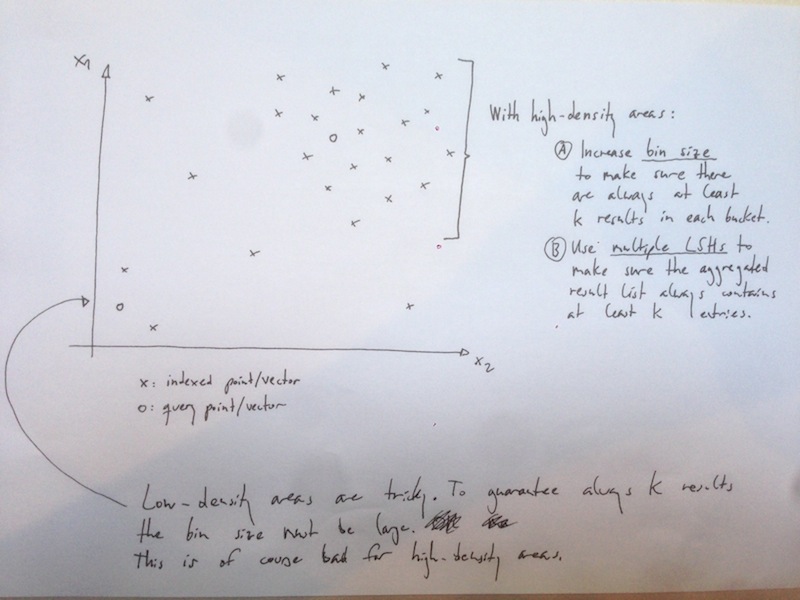 x1
With high-density areas:
(A) Increase bin size
to make sure there
are always at least
k results in each bucket.
(B) Use multiple LSHs to
make sure the aggregated
result list always contains
at least k entries.
x2
x: indexed point/vector
o: query point/vector
Low-density areas are tricky. To guarantee always k results
the bin size must be large.
This is of course bad for high-density areas.